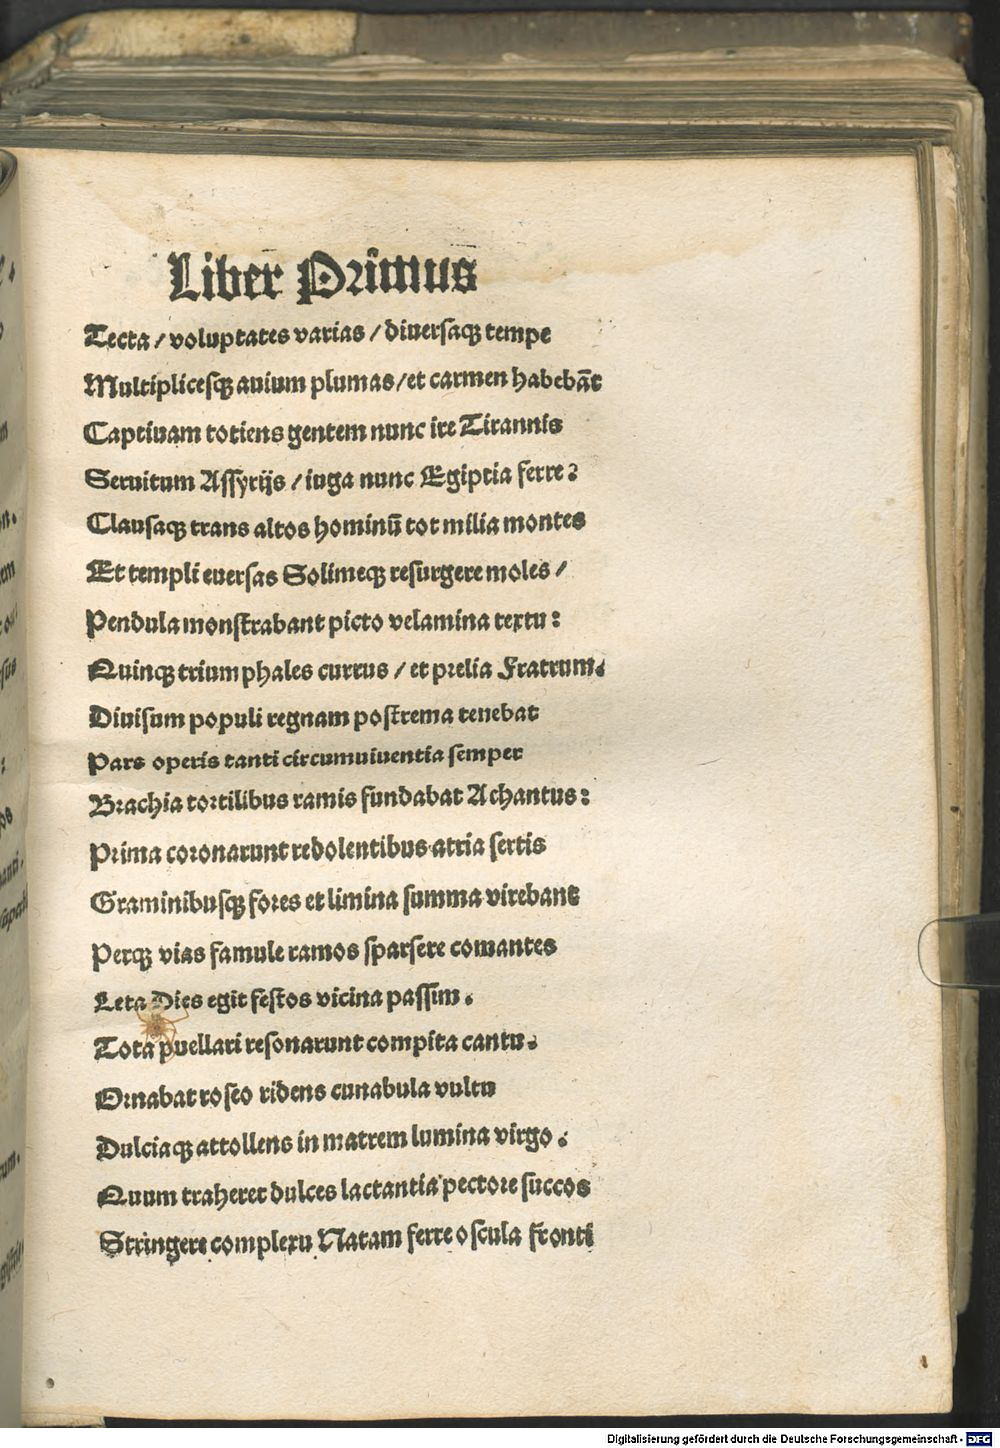 Liber Primus
Tecta / voluptates varias / diuersaqꝫ tempe
Multiplicesqꝫ auium plumas / et carmen habebāt
Captiuam totiens gentem nunc ire Tirannis
Seruitum Assyrijs / iuga nunc Egiptia ferre?
Clausaqꝫ trans altos hominū tot milia montes
Et templi euersas Solimeqꝫ resurgere moles /
Pendula monstrabant picto velamina textu:
Quinqꝫ triumphales currus / et prelia Fratrum.
Diuisum populi regnam postrema tenebat
Pars operis tanti circumuiuentia semper
Brachia tortilibus ramis fundabat Achantus:
Prima coronarunt redolentibus atria sertis
Graminibusqꝫ fores et limina summa virebant
Perqꝫ vias famule ramos sparsere comantes
Leta Dies egit festos vicina passim.
Tota puellari resonarunt compita cantu.
Ornabat roseo ridens cunabula vultu
Dulciaqꝫ attollens in matrem lumina virgo.
Quum traheret dulces lactantia pectore succos
Stringere complexu Natam ferre oscula fronti
Digitalisierung gefördert durch die Deutsche Forschungsgemeinschaft - DFG